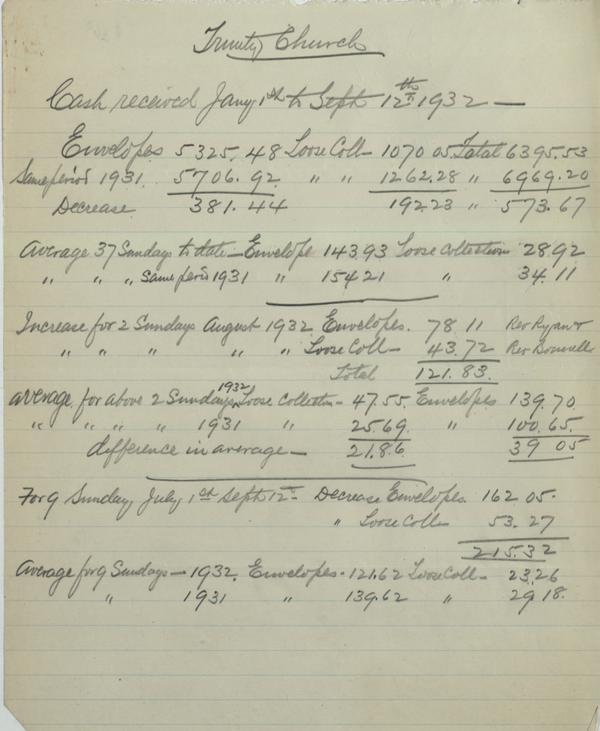 Trinity Church
Cash received Jany 1st to Sept 12th 1932 —
Envelopes 5325.48 Loose Coll- 1070 05 Total 6395.53
Same period 1931. 5706.92 " " 1262.28 " 6969.20
Decrease 381.44 192.23 " 573.67
Average 37 Sundays to date - Envelope 143.93 Loose Collection 28.92
" " " Same period 1931 " 154 21 " 34.11
Increase for 2 Sundays August 1932 Envelopes. 78.11 Rev Ryan &
" " " " " Loose Coll- 43.72 Rev
Total 121.83.
average for above 2 Sundays 1932 Loose Collection - 47.55 Envelopes 139.70
" " " " 1931 " 25.69. " 100.65.
difference in average - 21.86. 39 05
For 9 Sunday July 1st Sept 12th - Decrease Envelopes. 162 05.
" Loose Coll- 53.27
215.32
Average for 9 Sundays - 1932. Envelopes - 121.62 Loose Coll - 23.26
" 1931 " 139.62 " 29 18.